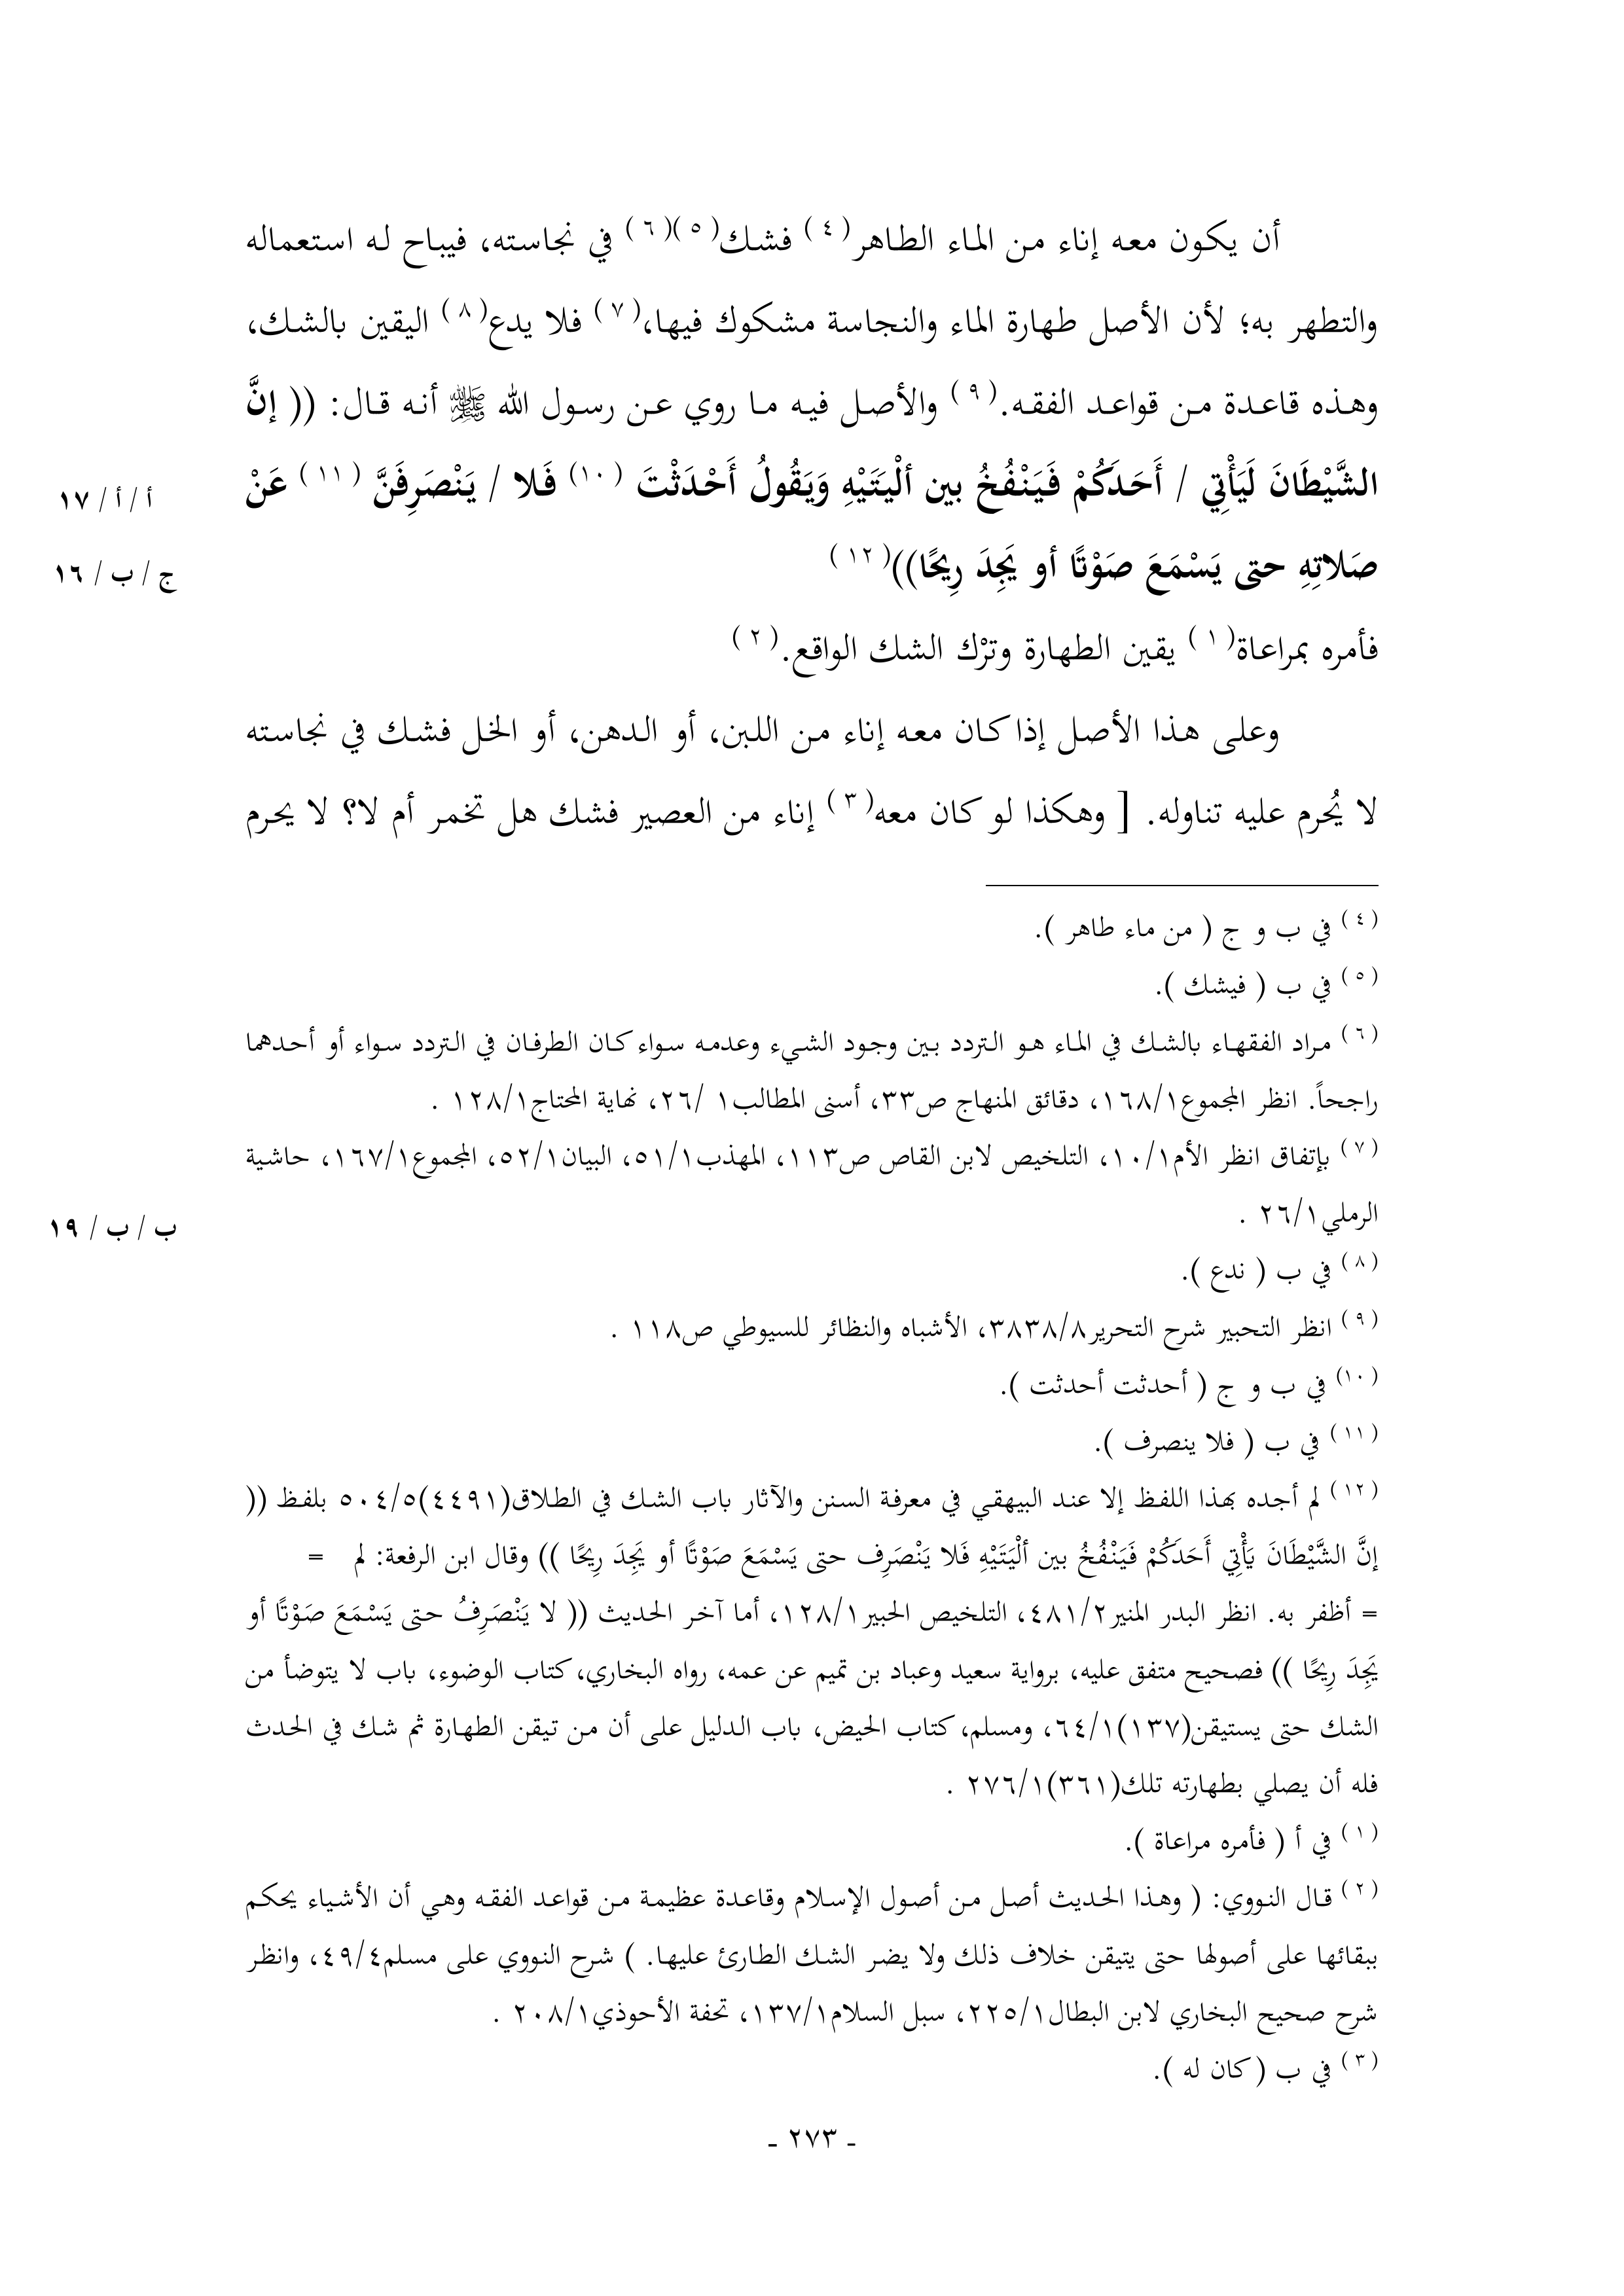 أن يكون معه إناء من الماء الطاهر(٤) فشك(٥)(٦) في نجاسته، فيباح له استعماله
والتطهر به؛ لأن الأصل طهارة الماء والنجاسة مشكوك فيها،(٧) فلا يدع(٨) اليقين بالشك،
وهذه قاعدة من قواعد الفقه.(٩) والأصل فيه ما روي عن رسول الله ﷺ أنه قال: (( إنَّ
الشَّيْطَانَ لَيَأْتِي / أَحَدَكُمْ فَيَنْفُخُ بين ألْيَتَيْهِ وَيَقُولُ أَحْدَثْتَ (١٠) فَلا / يَنْصَرِفَنَّ (١١) عَنْ
أ / أ / ١٧
صَلاتِهِ حتى يَسْمَعَ صَوْتًا أو يَجِدَ رِيحًا))(١٢)
ج / ب / ١٦
فأمره بمراعاة(١) يقين الطهارة وترْك الشك الواقع.(٢)
وعلى هذا الأصل إذا كان معه إناء من اللبن، أو الدهن، أو الخل فشك في نجاسته
لا يُحرم عليه تناوله. [ وهكذا لو كان معه(٣) إناء من العصير فشك هل تخمر أم لا؟ لا يحرم
(٤) في ب و ج ( من ماء طاهر ).
(٥) في ب ( فيشك ).
(٦) مراد الفقهاء بالشك في الماء هو التردد بين وجود الشيء وعدمه سواء كان الطرفان في التردد سواء أو أحدهما
راجحاً. انظر المجموع١٦٨/١، دقائق المنهاج ص٣٣، أسنى المطالب١ /٢٦، نهاية المحتاج١٢٨/١ .
(٧) بإتفاق انظر الأم١٠/١، التلخيص لابن القاص ص١١٣، المهذب٥١/١، البيان٥٢/١، المجموع١٦٧/١، حاشية
الرملي٢٦/١ .
ب / ب / ١٩
(٨) في ب ( ندع ).
(٩) انظر التحبير شرح التحرير٣٨٣٨/٨، الأشباه والنظائر للسيوطي ص١١٨ .
(١٠) في ب و ج ( أحدثت أحدثت ).
(١١) في ب ( فلا ينصرف ).
(١٢) لم أجده بهذا اللفظ إلا عند البيهقي في معرفة السنن والآثار باب الشك في الطلاق(٤٤٩١)٥٠٤/٥ بلفظ ((
إنَّ الشَّيْطَانَ يَأْتِي أَحَدَكُمْ فَيَنْفُخُ بين ألْيَتَيْهِ فَلا يَنْصَرِف حتى يَسْمَعَ صَوْتًا أو يَجِدَ رِيحًا )) وقال ابن الرفعة: لم =
= أظفر به. انظر البدر المنير٤٨١/٢، التلخيص الحبير١٢٨/١، أما آخر الحديث (( لا يَنْصَرِفُ حتى يَسْمَعَ صَوْتًا أو
يَجِدَ رِيحًا )) فصحيح متفق عليه، برواية سعيد وعباد بن تميم عن عمه، رواه البخاري، كتاب الوضوء، باب لا يتوضأ من
الشك حتى يستيقن(١٣٧)٦٤/١، ومسلم، كتاب الحيض، باب الدليل على أن من تيقن الطهارة ثم شك في الحدث
فله أن يصلي بطهارته تلك(٣٦١)٢٧٦/١ .
(١) في أ ( فأمره مراعاة ).
(٢) قال النووي: ( وهذا الحديث أصل من أصول الإسلام وقاعدة عظيمة من قواعد الفقه وهي أن الأشياء يحكم
ببقائها على أصولها حتى يتيقن خلاف ذلك ولا يضر الشك الطارئ عليها. ) شرح النووي على مسلم٤٩/٤، وانظر
شرح صحيح البخاري لابن البطال٢٢٥/١، سبل السلام١٣٧/١، تحفة الأحوذي٢٠٨/١ .
(٣) في ب ( كان له ).
- ٢٧٣ -